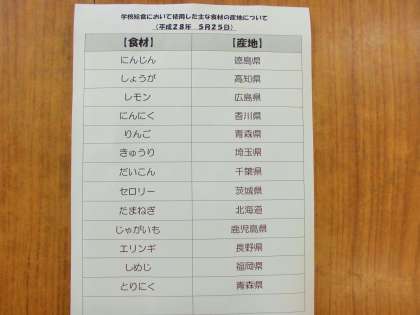 学校給食において使用した主な食材の産地について
（平成２８年　５月２５日）
【食材】　【産地】
にんじん　徳島県
しょうが　高知県
レモン　広島県
にんにく　香川県
りんご　青森県
きゅうり　埼玉県
だいこん　千葉県
セロリー　茨城県
たまねぎ　北海道
じゃがいも　鹿児島県
エリンギ　長野県
しめじ　福岡県
とりにく　青森県